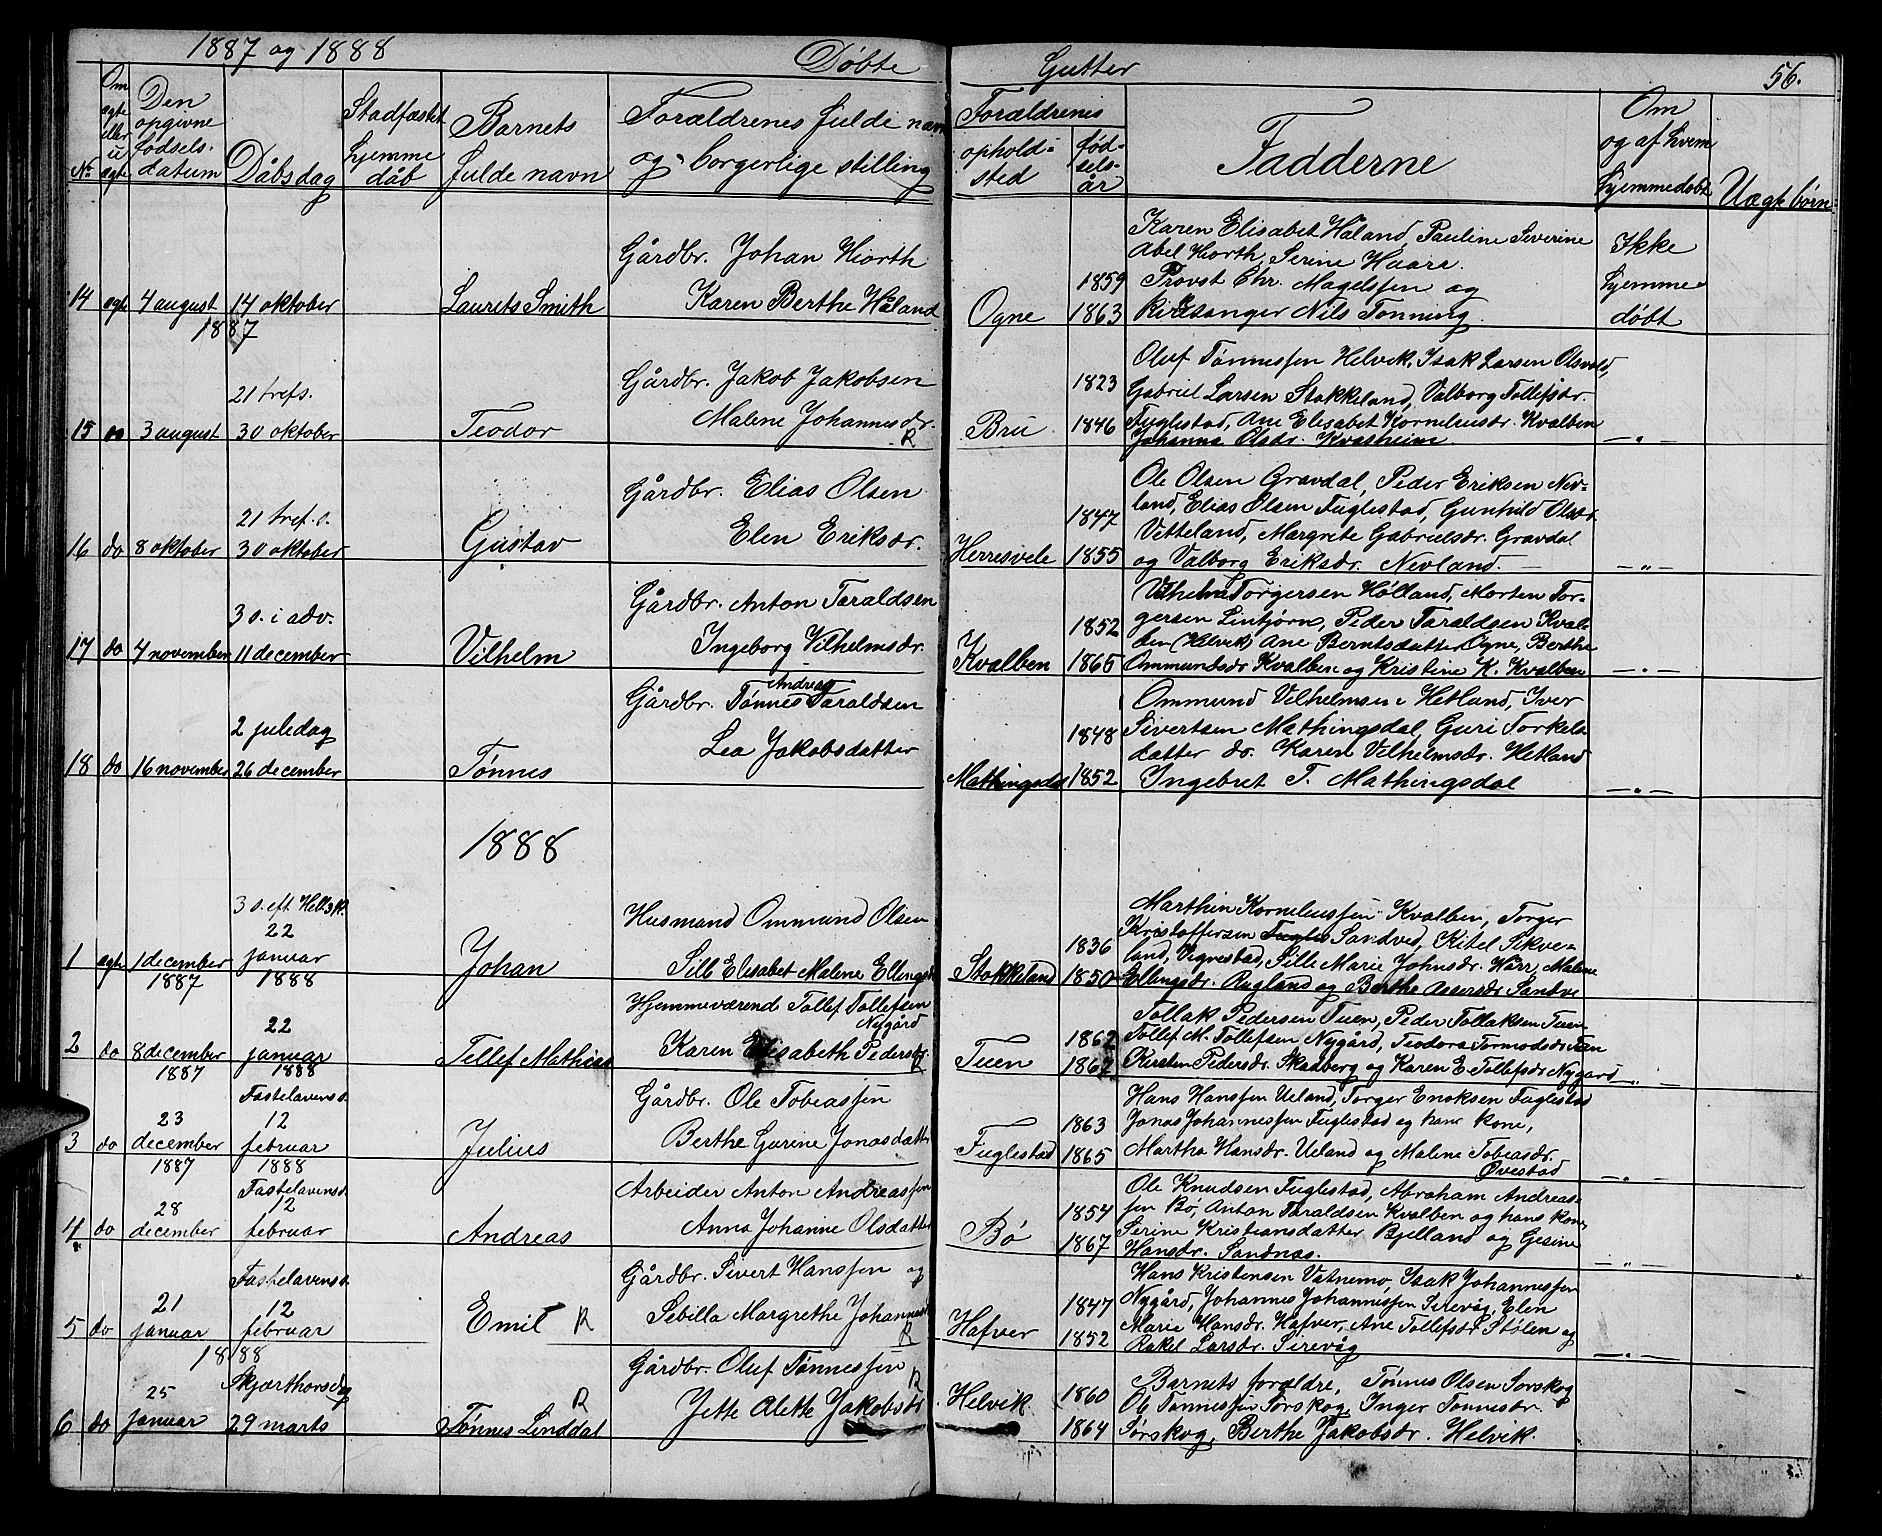 1887 og 1888
Døbte
Gutter
56.
No
Om ægte eller uægte
Den opgivne fødsels-datum
Dåbsdag
Stadfæstet hjemmedåb
Barnets fulde navn
Forældrenes fulde navn og borgerlige stilling
Forældrenes
opholdsted
fødselsår
Fadderne
Om og af hvem hjemmedøbt
Uægte børn
14 ægte 4 august 14 oktober
1887
Laurits Smith
Gårdbr. Johan Hiorth
Karen Berthe Håland
Ogne
1859
1863
Karen Elisabet Håland, Pauline Severine
Abel Hiorth, Serine Haare.
Provst Chr. Magelssen og
kirkesanger Nils Tønning.
Ikke
hjemme-
døbt
21 trefs.
15 do 3 august 30 oktober
Teodor
Gårdbr. Jakob Jakobsen
Malene Johannesdr.
R
Bru
1823
1846
Oluf Tønnessen Helvik, Isak Larsen Olsvold,
Gabriel Larsen Stokkeland, Valborg Tollefsdr.
Fuglestad, Ane Elisabet Kornelius dr. Kvalben
Johanna Olsdr. Kvasheim
— " —
21 tref. s.
16 do 8 oktober 30 oktober
Gustav
Gårdbr. Elias Olsen
Elen Eriksdr.
Herresvele
1847
1855
Ole Olsen Gravdal, Peder Eriksen Nev-
land, Elias Olsen Fuglestad, Gunhild Olsdr.
Vetteland, Margrete Gabrielsdr. Gravdal
og Valborg Eriksdr. Nevland.
— " —
3 s. i adv.
17 do 4 november 11 december
Vilhelm
Gårdbr. Anton Taraldsen
Ingeborg Vilhelmsdr.
Kvalben
1852
1865
Vilhelm Torgersen Hølland, Morten Tor-
gersen Lintjørn, Peder Taraldsen Kval-
ben (Helvik) Ane Berntsdatter Ogne, Berthe
Ommundsdr Kvalben og Kristine K. Kvalben
— " —
2 juledag
18 do 16 november 26 december
Tønnes
Andreas
Gårdbr. Tønnes Taraldsen
Lea Jakobsdatter
Mathingsdal
1848
1852
Ommund Vilhelmsen Hetland, Iver
Sivertsen Mathingsdal, Guri Torkels-
datter do. Karen Vilhelmsdr. Hetland
Ingebret T. Mathingsdal
— " —
1888
3 s. eft. Hell 3 K.
22
1 ægte 1 december januar
1887 1888
Johan
Husmand Ommund Olsen
Sille Elisabet Malene Ellingsdr
Stokkeland
1836
1850
Marthin Korneliussen Kvalben, Torger
Kristoffersen Sandved, Kitel Sikve-
land, Vigrestad, Sille Marie Johnsdr. Hårr, Malene
Ellingsdr. Rugland og Berthe Assersdr Sandve
22
2 do 8 december januar
1887 1888
Tellef Mathias
Hjemmeværend Tollef Tollefsen
Nygård
Karen Elisabeth Pedersdr.
R
Tuen
1862
1867
Tollak Pedersen Tuen, Peder Tollaksen Tuen
Tollef M. Tollefsen Nygård, Teodora Tormodsdr Tuen
Kirsten Pedersdr. Skadberg og Karen E. Tollefsdr Nygård
— " —
Fastelavens s.
23 12
3 do december februar
1887 1888
Julius
Gårdbr. Ole Tobiassen
Berthe Gurine Jonasdatter
Fuglestad
1863
1865
Hans Hanssen Ueland, Torger Enoksen Fuglestad
Jonas Johannessen Fuglestad og hans kone,
Martha Hansdr. Ueland og Malene Tobiasdr.
Øvestad
— " —
Fastelavens s.
28 12
4 do december februar
Andreas
Arbeider Anton Andreassen
Anna Johanne Olsdatter
Bø
1854
1867
Ole Knudsen Fuglestad, Abraham Andreas-
sen Bø, Anton Taraldsen Kvalben og hans kone,
Serine Kristiansdatter Bjelland og Gesine
Hansdr. Sandnæs.
— " —
Fastelavens s.
21 12
5 do januar februar
1888
Emil R
Gårdbr. Sivert Hanssen og
Sebilla Margrethe Johannesdr
R
Hafver
1847
1852
Hans Kristensen Vatnemo, Isak Johannessen
Nygård, Johannes Johannessen Sirevåg, Elen
Marie Hansdr. Hafver, Ane Tollefsdr Stølen og
Rakel Larsdr. Sirevåg
— " —
Skjærthorsdag
25
6 do januar 29 marts
R
Tønnes Linddal
Gårdbr. Oluf Tønnessen
R
Jette Alette Jakobsdr
Helvik
1860
1864
Barnets forældre, Tønnes Olsen Sørskog
Ole Tønnessen Sørskog, Inger Tønnesdr.
Sørskog, Berthe Jakobsdr. Helvik.